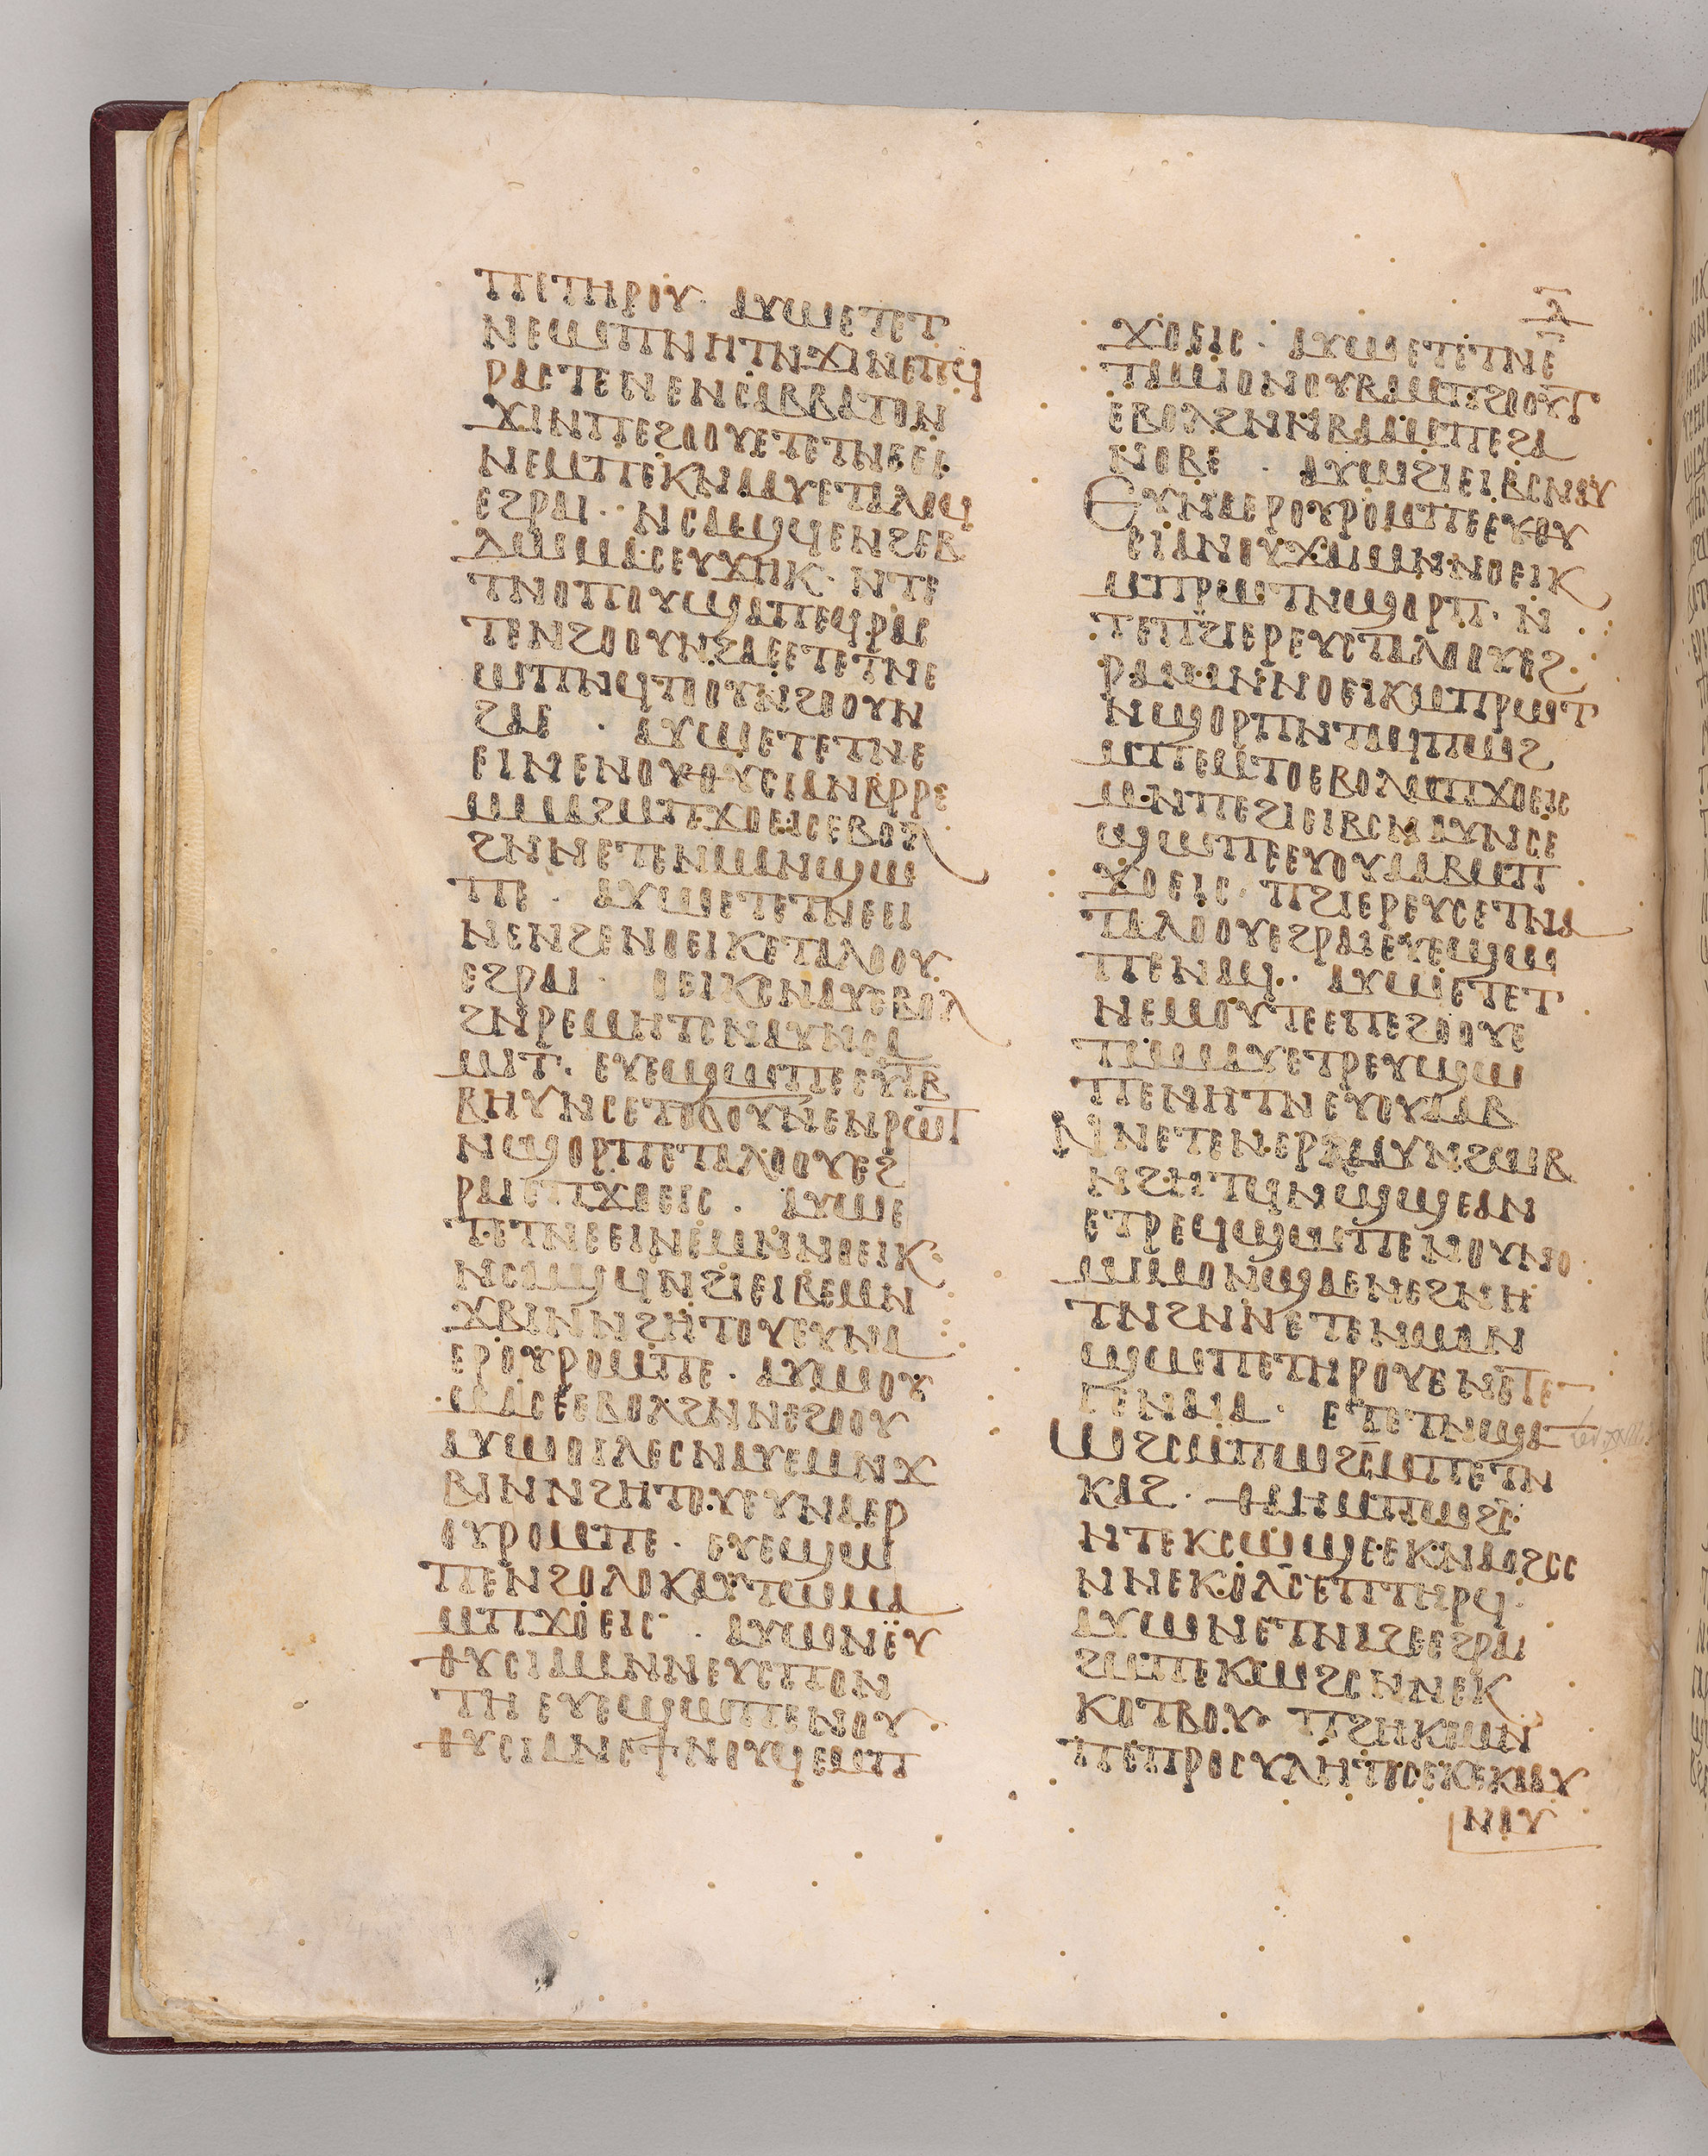 ⲡⲉⲧⲏⲣⲟⲩ· ⲁⲩⲱⲉⲧⲉⲧ
ⲛⲉⲱⲡⲛⲏⲧⲛϫⲓⲛⲉⲡⲉϥ
ⲣⲁⲥⲧⲉⲛⲉⲛⲥⲁⲃⲃⲁⲧⲟⲛ
ϫⲓⲛⲡⲉϩⲟⲟⲩⲉⲧⲉⲧⲛⲉⲉⲓ
ⲛⲉⲙⲡⲉⲕⲛⲁⲁⲩⲉⲧⲁⲗⲟϥ
ⲉϩⲣⲁⲓ· ⲛⲥⲁϣϥⲉⲛϩⲉⲃ
ⲇⲱⲙⲁⲥⲉⲩϫⲏⲕ· ⲛⲧⲉ
ⲧⲛⲟⲡⲟⲩϣⲁⲡⲉϥⲣⲁⲥ
ⲧⲉⲛϩⲟⲟⲩⲛϩⲁⲉⲉⲧⲉⲧⲛⲉ
ⲱⲡⲛϥⲧⲟⲟⲩⲛϩⲟⲟⲩⲛ
ϩⲁⲉ · ⲁⲩⲱⲉⲧⲉⲧⲛⲉ
ⲉⲓⲛⲉⲛⲟⲩⲑⲩⲥⲓⲁⲛⲃⲣⲣⲉ
ⲙⲙⲁϩⲙⲡϫⲟⲉⲓⲥⲉⲃⲟⲗ
ϩⲛⲛⲉⲧⲉⲛⲙⲁⲛϣⲱ
ⲡⲉ · ⲁⲩⲱⲉⲧⲉⲧⲛⲉⲉⲓ
ⲛⲉⲛϩⲉⲛⲟⲉⲓⲕⲉⲧⲁⲗⲟⲟⲩ
ⲉϩⲣⲁⲓ· ⲟⲉⲓⲕⲥⲛⲁⲩⲉⲃⲟⲗ
ϩⲛⲣⲉⲙⲏⲧⲥⲛⲁⲩⲛⲥⲁ
ⲙⲓⲧ· ⲉⲩⲉϣⲱⲡⲉⲉⲩⲧⲃ
ⲃⲏⲩⲛⲥⲉⲧⲟϭⲟⲩⲛⲉⲛⲣⲱⲧ
ⲛϣⲟⲣⲡⲉⲧⲁⲗⲟⲟⲩⲉϩ
ⲣⲁⲓⲉⲡϫⲟⲉⲓⲥ · ⲁⲩⲱⲉ
ⲧⲉⲧⲛⲉⲉⲓⲛⲉⲙⲛⲛⲟⲉⲓⲕ
ⲛⲥⲁϣϥⲛϩⲓⲉⲓⲃⲉⲙⲛ
ϫⲃⲓⲛⲛϩⲏⲧⲟⲩⲉⲩⲛⲁ
ⲉⲣⲟⲩⲣⲟⲙⲡⲉ · ⲁⲩⲱⲟⲩ
ⲙⲁⲥⲉⲉⲃⲟⲗϩⲛⲛⲉϩⲟⲟⲩ
ⲁⲩⲱⲟⲓⲗⲉⲥⲛⲁⲩⲉⲙⲛϫ
ⲃⲓⲛⲛϩⲏⲧⲟⲩⲉⲩⲛⲁⲉⲣ
ⲟⲩⲣⲟⲙⲡⲉ · ⲉⲩⲉϣⲱ
ⲡⲉⲛϩⲟⲗⲟⲕⲁⲩⲧⲱⲙⲁ
ⲙⲡϫⲟⲉⲓⲥ · ⲁⲩⲱⲛⲉⲩ
ⲑⲩⲥⲓⲁⲙⲛⲛⲉⲩⲥⲡⲟⲛ
ⲧⲏ ⲉⲩⲉϣⲱⲡⲉⲛⲟⲩ
ⲑⲩⲥⲓⲁⲛⲥϯⲛⲟⲩϥⲉⲙⲡ
ⲗ
ϫⲟⲉⲓⲥ · ⲁⲩⲱⲉⲧⲉⲧⲛⲉ
ⲧⲁⲙⲓⲟⲛⲟⲩⲃⲁⲙⲡϩⲟⲟⲩⲧ
ⲉⲃⲟⲗϩⲛⲛⲃⲁⲁⲙⲡⲉϩⲁ
ⲛⲟⲃⲉ · ⲁⲩⲱϩⲓⲉⲓⲃⲥⲛⲁⲩ
ⲉⲩⲛⲁⲉⲣⲟⲩⲣⲟⲙⲡⲉⲉⲩⲑⲩ
ⲥⲓⲁⲛⲟⲩϫⲁⲓⲙⲛⲛⲟⲉⲓⲕ
ⲙⲡⲣⲱⲧⲛϣⲟⲣⲡ· ⲛ
ⲧⲉⲡϩⲓⲉⲣⲉⲩⲥⲧⲁⲗⲟⲟⲩⲉϩ
ⲣⲁⲓⲙⲛⲛⲟⲉⲓⲕⲙⲡⲣⲱⲧ
ⲛϣⲟⲣⲡⲛⲧⲁϥⲡⲱϩ
ⲙⲡⲉⲙⲧⲟⲉⲃⲟⲗⲙⲡϫⲟⲉⲓⲥ
ⲙⲛⲡⲉϩⲓⲉⲓⲃⲥⲛⲁⲩⲛⲥⲉ
ϣⲱⲡⲉⲉⲩⲟⲩⲁⲁⲃⲙⲡ
ϫⲟⲉⲓⲥ· ⲡϩⲓⲉⲣⲉⲩⲥⲉⲧⲛⲁ
ⲧⲁⲗⲟⲟⲩⲉϩⲣⲁⲓⲉⲩⲉϣⲱ
ⲡⲉⲛⲁϥ· ⲁⲩⲱⲉⲧⲉⲧ
ⲛⲉⲙⲟⲩⲧⲉⲉⲡⲉϩⲟⲟⲩⲉ
ⲧⲙⲙⲁⲩⲉⲧⲣⲉⲩϣⲱ
ⲡⲉⲛⲏⲧⲛⲉⲩⲟⲩⲁⲁⲃ
ⲛⲛⲉⲧⲉⲛⲉⲣⲗⲁⲁⲩⲛϩⲱⲃ
ⲛϩⲏⲧϥⲛϣϣⲉⲁⲛ
ⲉⲧⲣⲉϥϣⲱⲡⲉⲛⲟⲩⲛⲟ
ⲙⲙⲟⲛϣⲁⲉⲛⲉϩⲛⲏ
ⲧⲛϩⲛⲛⲉⲧⲉⲛⲙⲁⲛ
ϣⲱⲡⲉⲧⲏⲣⲟⲩⲉⲛⲉⲧⲉ
ⲅⲉⲛⲉⲁ· ⲉⲧⲉⲧⲛϣⲁ
ⲱϩⲥⲙⲡⲱϩⲥⲙⲡⲉⲧⲛ
ⲕⲁϩ· ⲑⲁⲏⲙⲡⲱϩⲥ
ⲛⲧⲉⲕⲥⲱϣⲉⲉⲕⲛⲁⲟϩⲥⲥ
ⲛⲛⲉⲕⲟⲗⲥⲉⲡⲧⲏⲣϥ
ⲁⲩⲱⲛⲉⲧⲛⲁϩⲉⲉϩⲣⲁⲓ
ϩⲙⲡⲉⲕⲱϩⲥⲛⲛⲉⲕ
ⲕⲟⲧⲃⲟⲩ· ⲡϩⲏⲕⲙⲛ
ⲡⲉⲡⲣⲟⲥⲩⲗⲏⲧⲟⲥⲉⲕⲉⲕⲁⲁⲩ
ⲛⲁⲩ